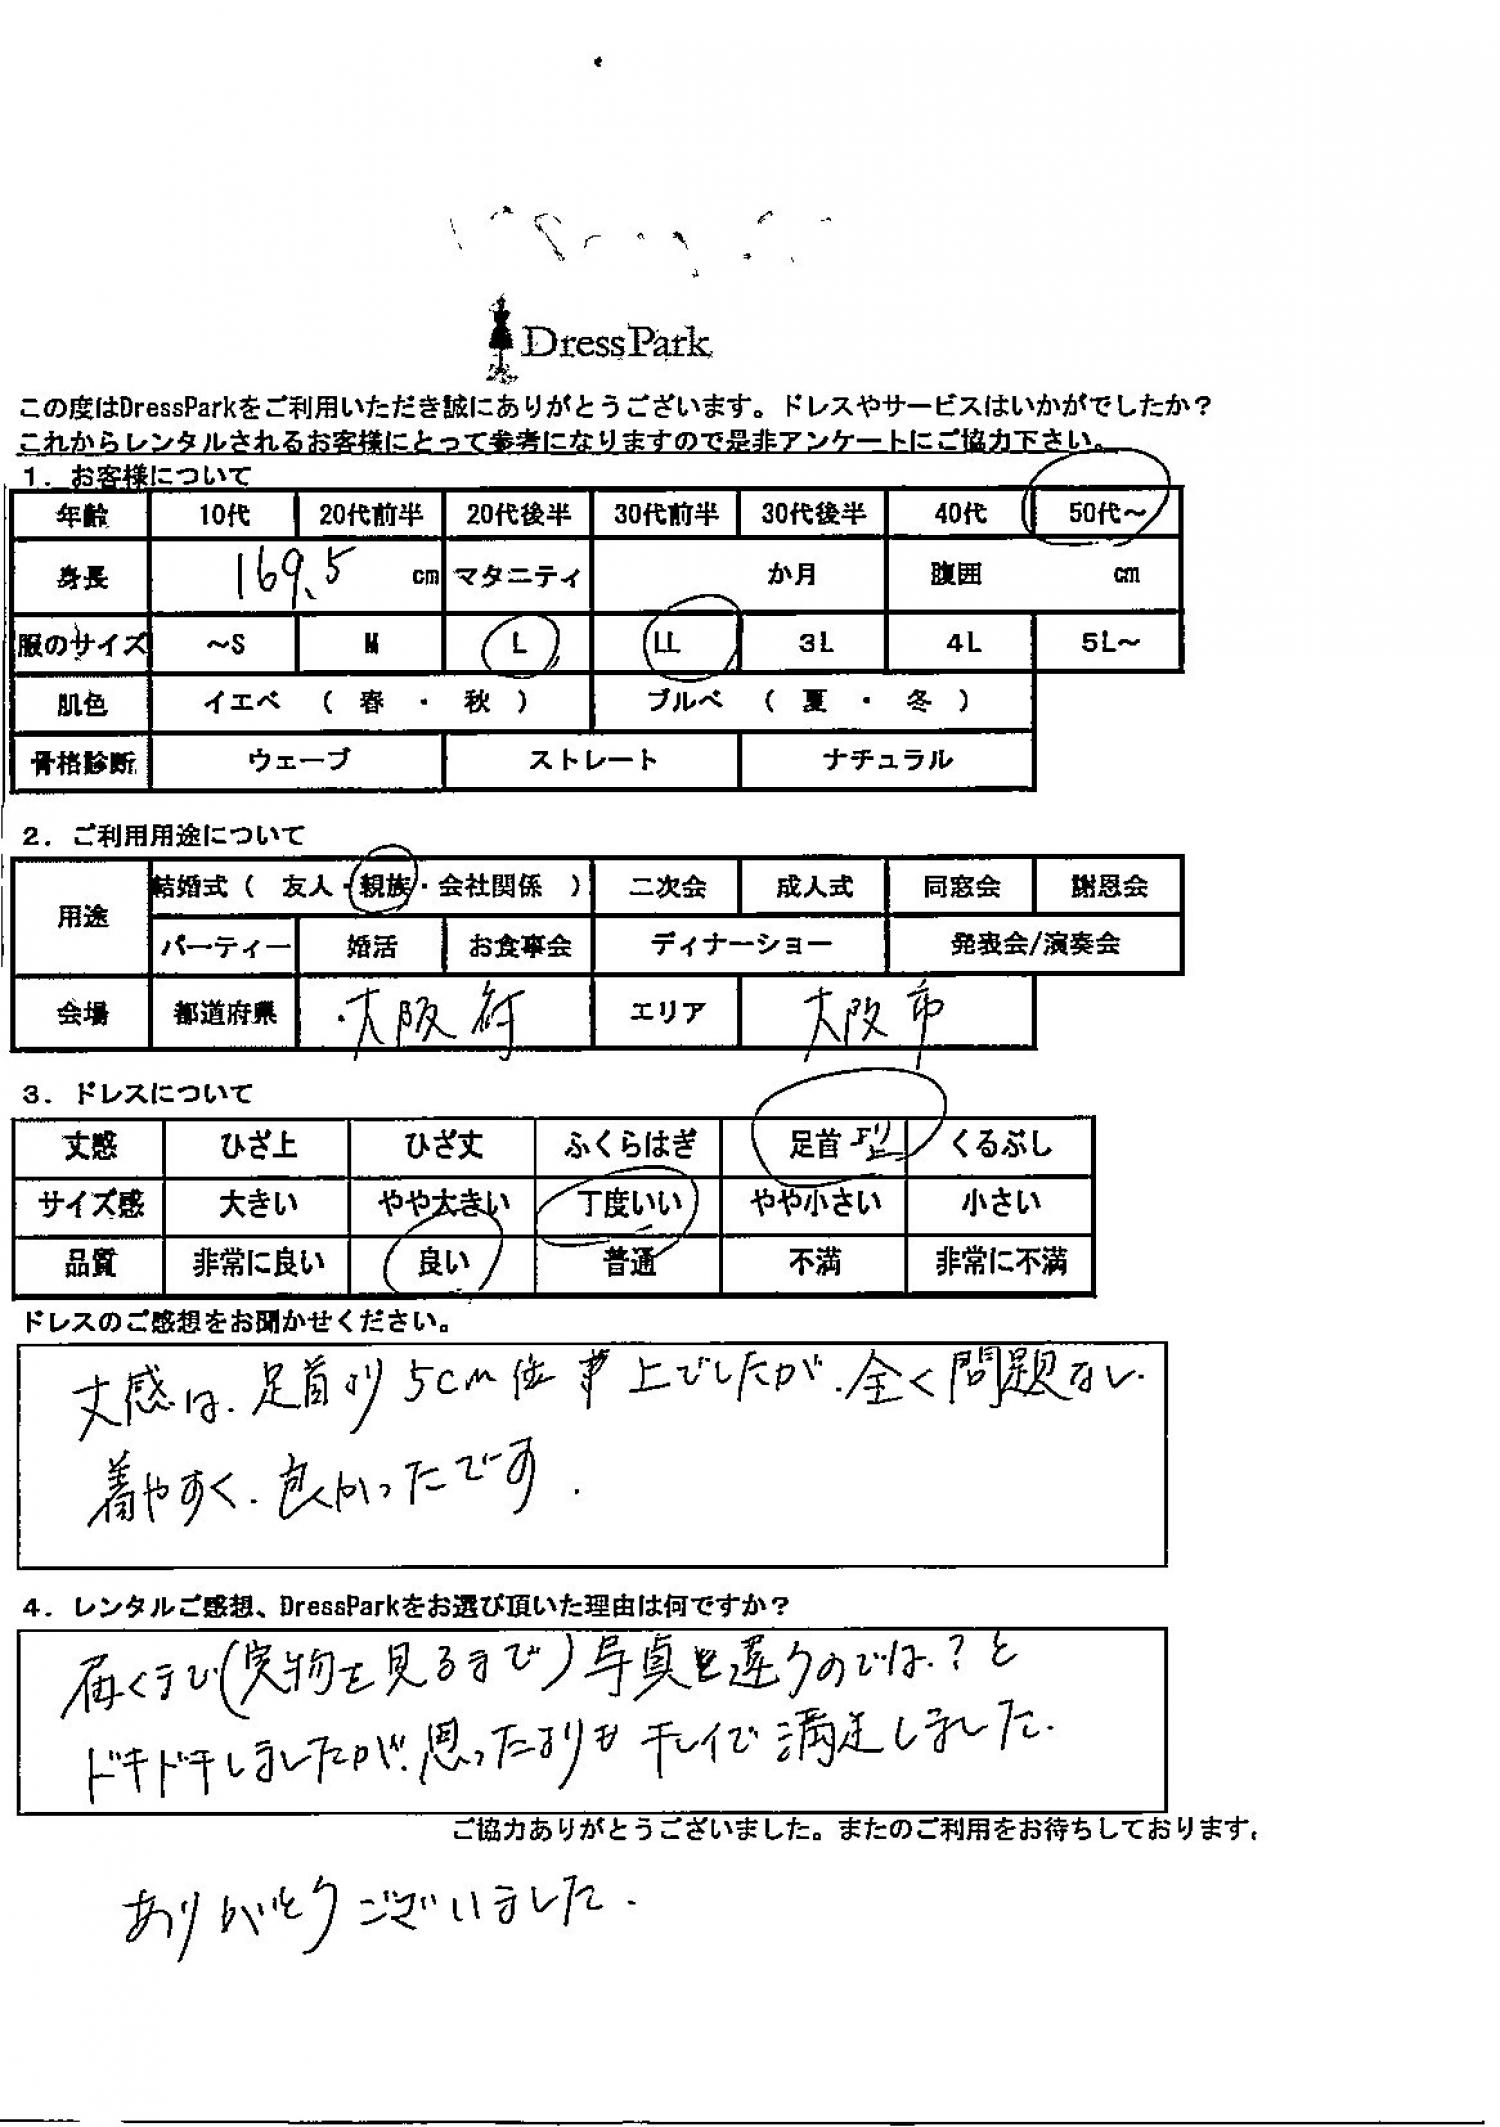 DressPark
この度はDressParkをご利用いただき誠にありがとうございます。ドレスやサービスはいかがでしたか？
これからレンタルされるお客様にとって参考になりますので是非アンケートにご協力下さい。
1．お客様について
年齢 10代 20代前半 20代後半 30代前半 30代後半 40代 50代～
身長 169.5 cm マタニティ か月 腹囲 cm
服のサイズ ～S M L LL 3L 4L 5L～
肌色 イエベ（ 春 ・ 秋 ） ブルベ （ 夏 ・ 冬 ）
骨格診断 ウェーブ ストレート ナチュラル
2．ご利用用途について
用途 結婚式（ 友人・親族・会社関係 ） 二次会 成人式 同窓会 謝恩会
パーティー 婚活 お食事会 ディナーショー 発表会/演奏会
会場 都道府県 大阪府 エリア 大阪市
3．ドレスについて
丈感 ひざ上 ひざ丈 ふくらはぎ 足首 より上 くるぶし
サイズ感 大きい やや大きい 丁度いい やや小さい 小さい
品質 非常に良い 良い 普通 不満 非常に不満
ドレスのご感想をお聞かせください。
丈感は、足首より5cm位 上でしたが、全く問題ない
着やすく、良かったです．
4．レンタルご感想、DressParkをお選び頂いた理由は何ですか？
届くまで(実物を見るまで)写真と違うのでは？と
ドキドキしましたが、思ったよりもキレイで満足しました．
ご協力ありがとうございました。またのご利用をお待ちしております。
ありがとうございました．